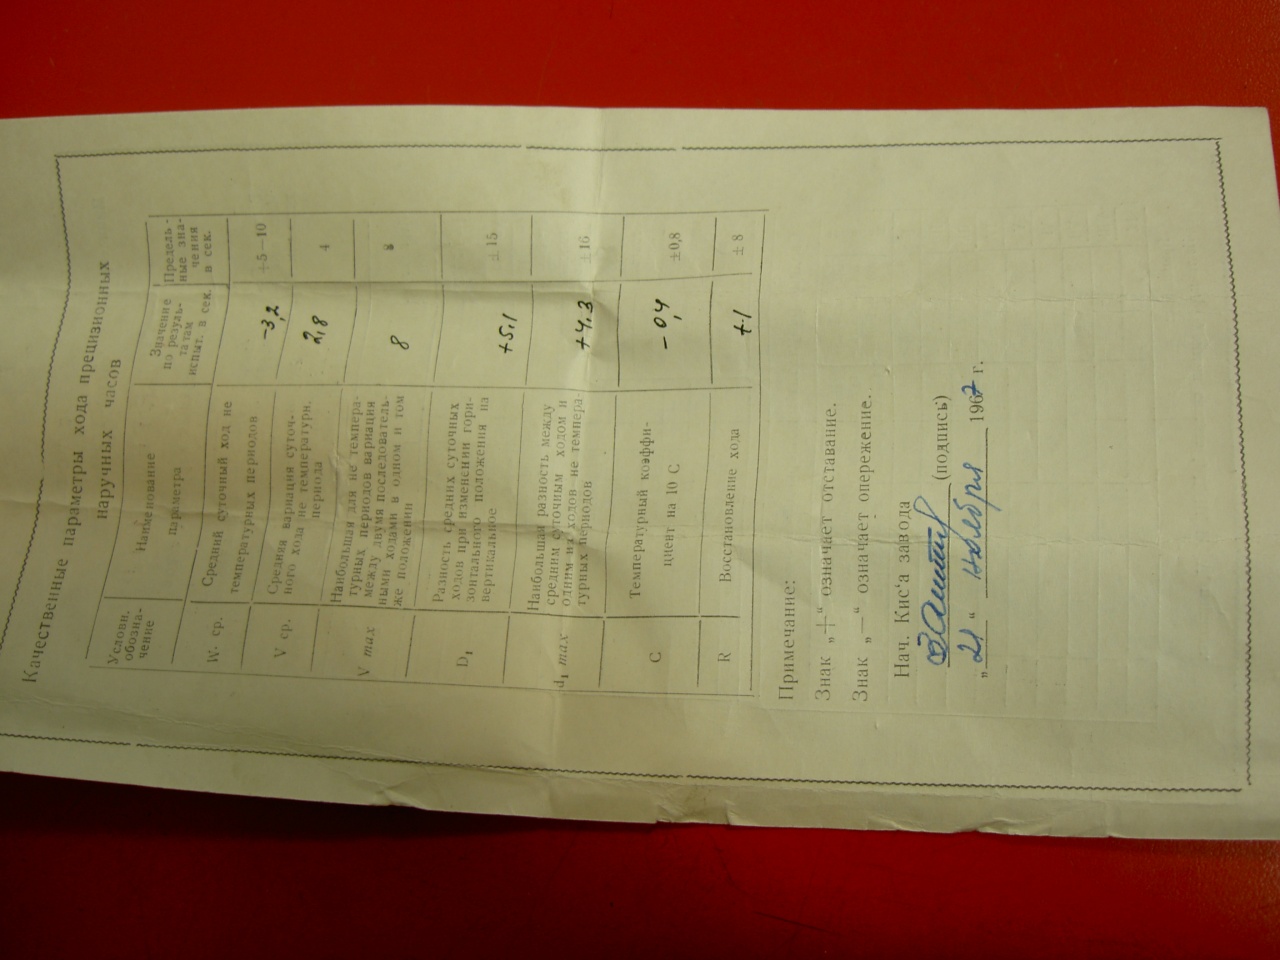 Качественные параметры хода прецизионных
наручных часов
Условн. обозна- чение
Наименование параметра
Значение по резуль- татам испыт. в сек.
Предель- ные зна- чения в сек.
W. ср.
Средний суточный ход не
температурных периодов
-3,2
+5—10
V ср.
Средняя вариация суточ-
ного хода не температурн.
периода
2,8
4
V max
Наибольшая для не темпера-
турных периодов вариация
между двумя последователь-
ными ходами в одном и том
же положении
8
8
D₁
Разность средних суточных
ходов при изменении гори-
зонтального положения на
вертикальное
+5,1
±15
d₁ max
Наибольшая разность между
средним суточным ходом и
одним из ходов не темпера-
турных периодов
+4,3
±16
C
Температурный коэффи-
циент на 10 С
-0,4
±0,8
R
Восстановление хода
+1
±8
Примечание:
Знак „+“ означает отставание.
Знак „—“ означает опережение.
Нач. Кис'а завода
(подпись)
„21“ ноября 1967 г.